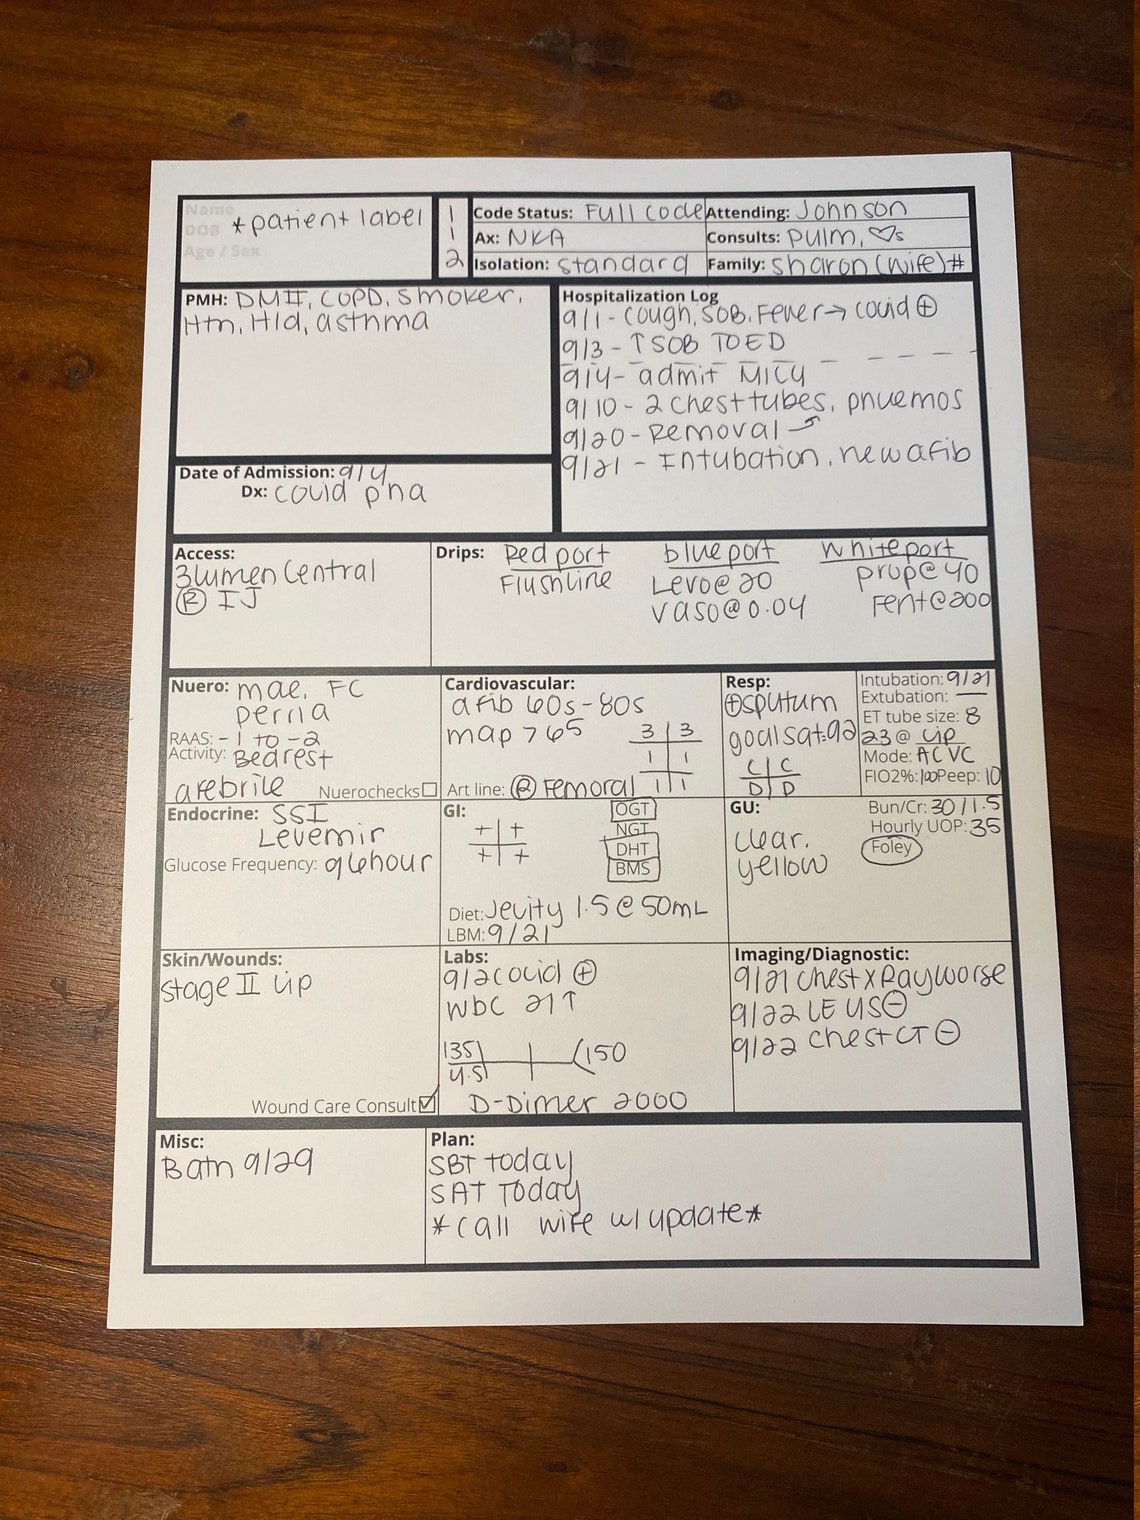 Name
DOB
Age / Sex
*patient label
1
1
2
Code Status: Full code
Attending: Johnson
Ax: NKA
Consults: pulm, ♡s
Isolation: standard
Family: sharon (wife) #
PMH: DMII, COPD, smoker,
Htn, Hld, asthma
Hospitalization Log
9/1 - cough, SOB, Fever → covid ⊕
9/3 - ↑ SOB TO ED
9/4 - admit MICU
9/10 - 2 chest tubes, pnuemos
9/20 - Removal
9/21 - Intubation, new afib
Date of Admission: 9/4
Dx: covid pna
Access:
3 lumen Central
Ⓡ IJ
Drips:
Red port
Flushline
blue port
Levo @ 20
vaso @ 0.04
white port
prop @ 40
Fent @ 200
Nuero: mae, FC
perrla
RAAS: -1 to -2
Activity: Bedrest
afebrile
Nuerochecks
Cardiovascular:
afib 60s - 80s
map > 65
3 | 3
1 | 1
1 | 1
Art line: Ⓡ Femoral
Resp:
⊕ sputum
goal sat: 92
C | C
D | D
Intubation: 9/21
Extubation: —
ET tube size: 8
23 @ lip
Mode: ACVC
FIO2%: 100 Peep: 10
Endocrine: SSI
Levemir
Glucose Frequency: q6hour
GI:
+ | +
+ | +
OGT
NGT
DHT
BMS
Diet: Jevity 1.5 @ 50mL
LBM: 9/21
GU:
clear,
yellow
Bun/Cr: 30/1.5
Hourly UOP: 35
Foley
Skin/Wounds:
stage II lip
Wound Care Consult
Labs:
9/2 covid ⊕
wbc 21 ↑
135
150
4.5
D-Dimer 2000
Imaging/Diagnostic:
9/21 chest x Ray worse
9/22 LE US ⊖
9/22 chest CT ⊖
Misc:
Bath 9/29
Plan:
SBT today
SAT Today
*call wife w/ update*